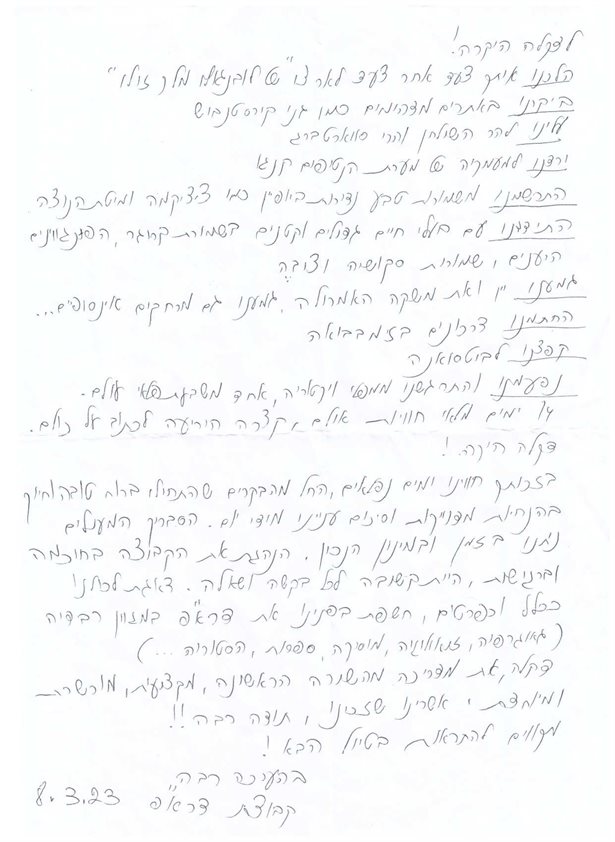 לדקלה היקרה!
הלכנו איתך צעד אחר צעד לארצו "של לובנגולו מלך זולו"
ביקרנו באתרים מדהימים כמו גני קירסטנבוש
עלינו להר השולחן והרי סווארטברג
ירדנו למעמקיה של מערת הנטיפים קנגו
התרשמנו משמורות טבע נדירות באופיין כמו ציציקמה ומיטת הנוצה
התיידדנו עם בעלי חיים גדולים וקטנים בשמורת קרוגר, הפינגווינים
היענים, שמורות
גמענו יין ואת משקה האמרולה, גמענו גם מרחקים אינסופיים...
החתמנו דרכונים בזמבבואה
קפצנו לבוטסואנה
נפעמנו והתרגשנו ממפלי ויקטוריה, אחד משבעת פלאי עולם.
14 ימים מלאי חוויות אולם, קצרה היריעה לכתוב על כולם.
דקלה היקרה!
בזכותך חווינו ימים נפלאים, החל מהבקרים שהתחילו ברוח טובה וחיוך
בהנחיות מדוייקות וסיכום ענייני מידי יום. הסבריך המעולים
נתנו בזמן ובמינון הנכון. הנהגת את הקבוצה בחוכמה
וברגישות, היית קשובה לכל בקשה ושאלה. דאגת לכולנו
ככלל וכפרטים, חשפת בפנינו את דרא"פ במגוון רבדיה
(גאוגרפיה, זואולוגיה, מוסיקה, ספרות, הסטוריה...)
דקלה, את מדריכה מהשורה הראשונה, מקצועית, מורשרת
ומיוחדת. אשרינו שזכינו, תודה רבה!!
מקווים להתראות בטיול הבא!
בהערכה רבה,
קבוצת דרא"פ 8.3.23